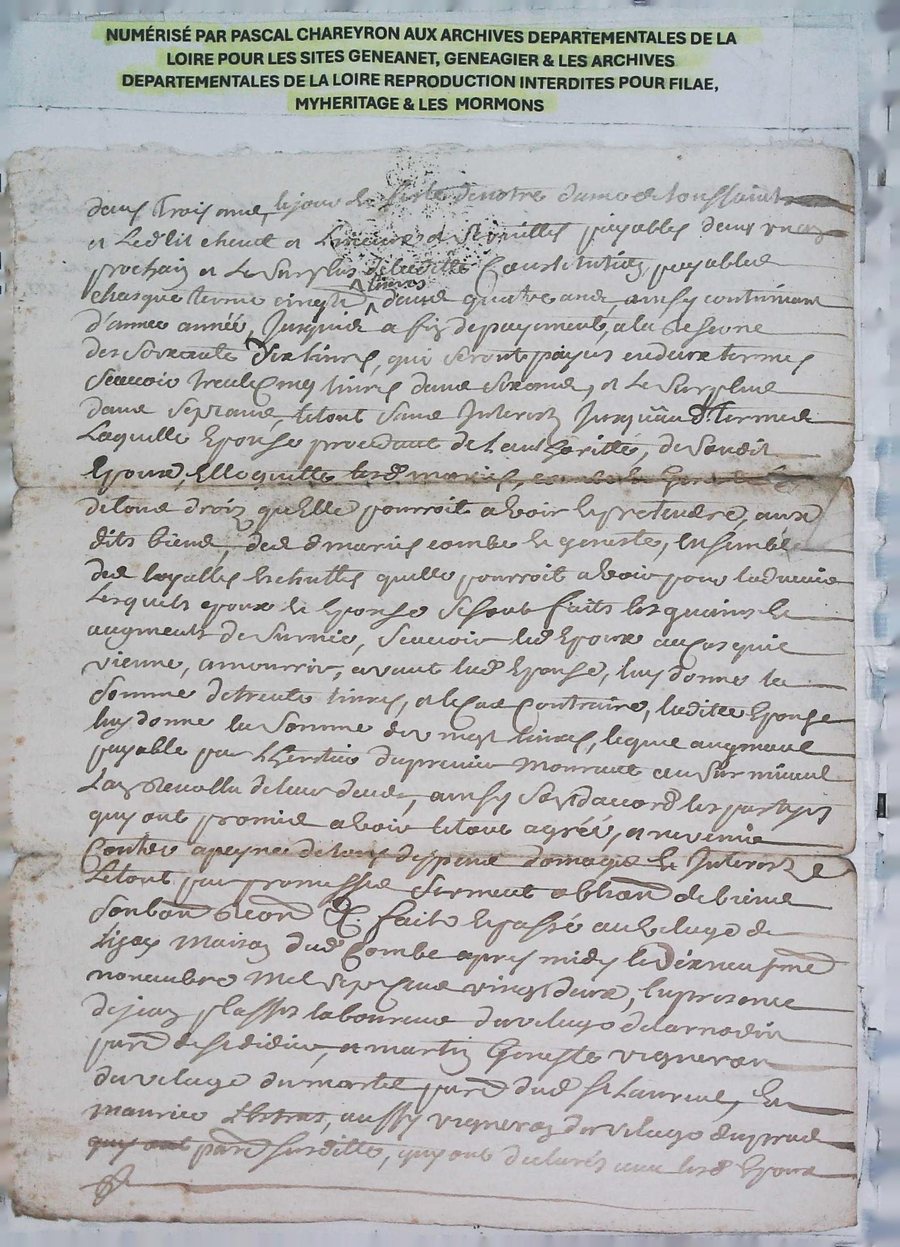 NUMÉRISÉ PAR PASCAL CHAREYRON AUX ARCHIVES DEPARTEMENTALES DE LA
LOIRE POUR LES SITES GENEANET, GENEAGIER & LES ARCHIVES
DEPARTEMENTALES DE LA LOIRE REPRODUCTION INTERDITES POUR FILAE,
MYHERITAGE & LES MORMONS
dans trois ans, le jour de feste de notre dame de toussaint
et payables dans un an
prochain et le surplus de ladite Constitution payables
livres
chasque terme cinq dans quatre ans, ainsy continuant
d'année année, jusques a fin de payement, a la reserve
des soixante dix livres, qui seront payes en deux termes
scavoir trente cinq livres dans six ans, et le surplus
dans sept ans, le tout sans interest jusqu'au d. terme
Laquelle Epouse procedant de l'authoritté, de sondit
Epoux, Elle quitte lesd. mariés,
de tous drois qu'elle pourroit avoir et pretendre, aux
dits biens, des d. mariés combe et geneste, ensemble
des loyalles echuttes quelle pourroit avoir pour ladvenir
Lesquels epoux et Epouse se sont faits les gains et
augments de survie, scavoir led. Epoux au cas quil
vienne, a mourrir, avant lad. Epouse, luy donne la
somme de trente livres, et le cas Contraire, ladite Epouse
luy donne la somme de vingt livres, lequel augment
payable par L'heritier du premier mourant au survivant
La de leur deces, ainsy sont d'accord les partyes
quy ont promis avoir le tout agréé, et ne venir
Contre a peyne de tous despens domages et interest
Le tout par promesse serment obligaon de biens
&c fait et passé au vilage de
maison dud. Combe apres midy le dix neuf me
novembre mil sept cens vingt deux, en presence
de jean plasses laboureur du vilage
parre de st didier, et martin Geneste vigneron
du vilage du martel parre dud. st Laurent, et
maurice aussy vigneron du vilage du
quy ont parre susditte, quy ont declarés avec lesd. Epoux